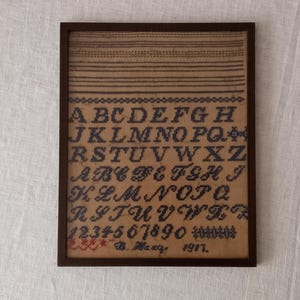 ABCDEFGH
JKLMNOPQ
RSTUVWXZ
ABCDEFGHJ
KLMNOPQ
RSTUVWXZ
1234567890
B. Haag. 1917.